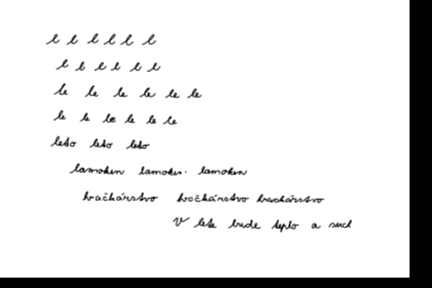 l l l l l l
l l l l l l
le le le le le le
le le le le le le
leto leto leto
lamoken lamoken. lamoken
hračkárstvo hračkárstvo hračkárstvo
V lete bude teplo a such